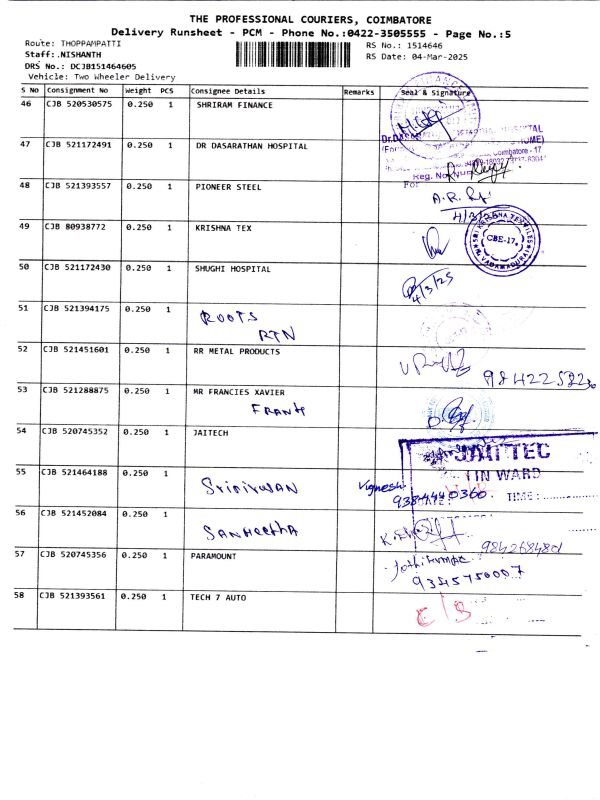 THE PROFESSIONAL COURIERS, COIMBATORE
Delivery Runsheet - PCM - Phone No.:0422-3505555 - Page No.:5
Route: THOPPAMPATTI
RS No.: 1514646
Staff: .NISHANTH
RS Date: 04-Mar-2025
DRS No.: DCJB151464605
Vehicle: Two Wheeler Delivery
S No Consignment No Weight PCS Consignee Details Remarks Seal & Signature
46 CJB 520530575 0.250 1 SHRIRAM FINANCE
47 CJB 521172491 0.250 1 DR DASARATHAN HOSPITAL
Coimbatore - 17
Reg. No
48 CJB 521393557 0.250 1 PIONEER STEEL
For
A.R.
4/3/25
49 CJB 80938772 0.250 1 KRISHNA TEX
SRI KRISHNA TEXTILES
CBE-17.
VADAMADURAI
50 CJB 521172430 0.250 1 SHUGHI HOSPITAL
4/3/25
51 CJB 521394175 0.250 1 ROOTS
RTN
52 CJB 521451601 0.250 1 RR METAL PRODUCTS
53 CJB 521288875 0.250 1 MR FRANCIES XAVIER
FRANH
54 CJB 520745352 0.250 1 JAITECH
JAITTEC
IN WARD
55 CJB 521464188 0.250 1 Srinivasan
Vignesh
9384440360
TIME :
56 CJB 521452084 0.250 1 SANHEETHA
57 CJB 520745356 0.250 1 PARAMOUNT
Jothikumar
9345750007
58 CJB 521393561 0.250 1 TECH 7 AUTO
C/S